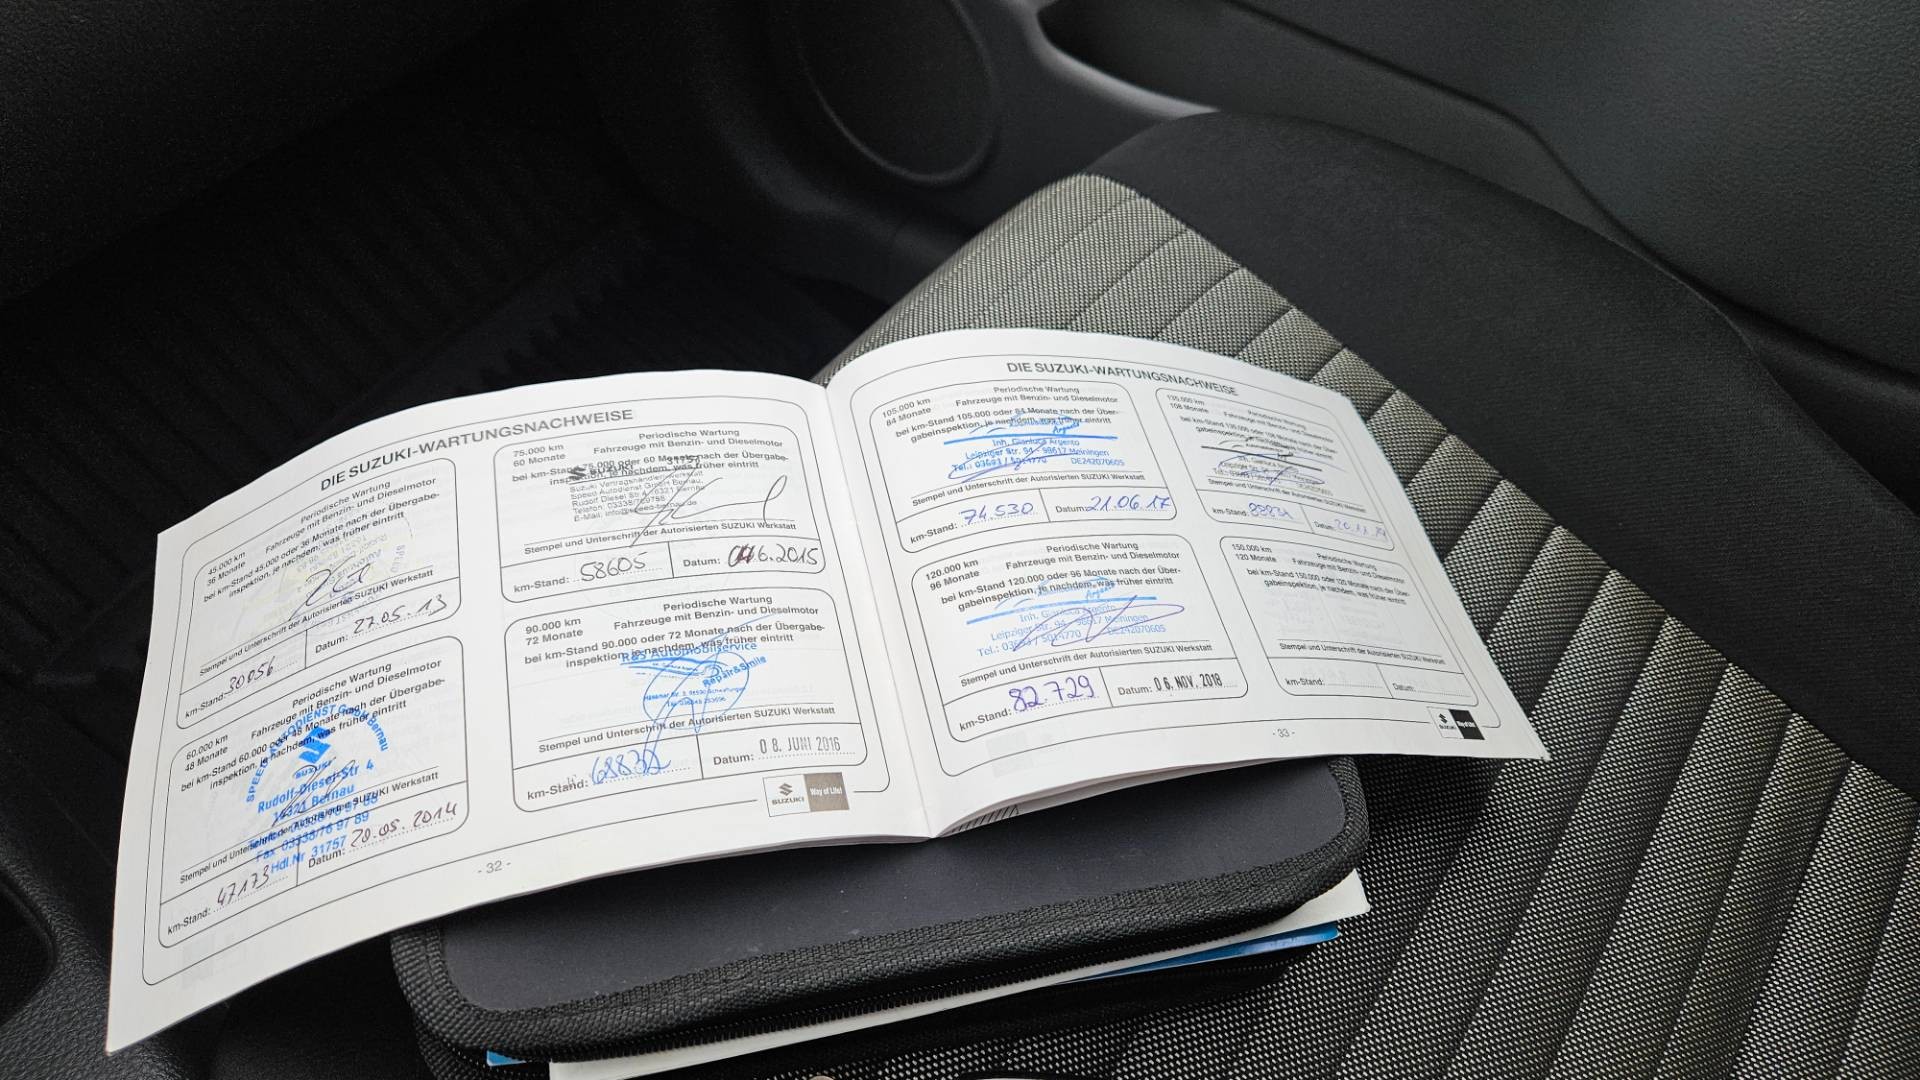 DIE SUZUKI-WARTUNGSNACHWEISE
45.000 km
36 Monate
Periodische Wartung
Fahrzeuge mit Benzin- und Dieselmotor
bei km-Stand 45.000 oder 36 Monate nach der Übergabe-
inspektion, je nachdem, was früher eintritt
Stempel und Unterschrift der Autorisierten SUZUKI Werkstatt
km-Stand: 30056
Datum: 27.05.13
60.000 km
48 Monate
Periodische Wartung
Fahrzeuge mit Benzin- und Dieselmotor
bei km-Stand 60.000 oder 48 Monate nach der Übergabe-
inspektion, je nachdem, was früher eintritt
SUZUKI
Rudolf-Diesel-Str 4
16321 Bernau
Fax 03338/76 97 89
Hdl.Nr 31757
Stempel und Unterschrift der Autorisierten SUZUKI Werkstatt
km-Stand: 47173
Datum: 20.05.2014
75.000 km
60 Monate
Periodische Wartung
Fahrzeuge mit Benzin- und Dieselmotor
bei km-Stand 75.000 oder 60 Monate nach der Übergabe-
inspektion, je nachdem, was früher eintritt
SUZUKI 31757
Suzuki Vertragshändler
Speed Autodienst GmbH Bernau
Rudolf Diesel Str.4 16321 Bernau
Telefon: 03338/769788
E-Mail: info@speed-bernau.de
Stempel und Unterschrift der Autorisierten SUZUKI Werkstatt
km-Stand: 58605
Datum: 6.2015
90.000 km
72 Monate
Periodische Wartung
Fahrzeuge mit Benzin- und Dieselmotor
bei km-Stand 90.000 oder 72 Monate nach der Übergabe-
inspektion, je nachdem, was früher eintritt
R&S Automobilservice
Repair&Smile
Stempel und Unterschrift der Autorisierten SUZUKI Werkstatt
km-Stand:
Datum: 08. JUNI 2016
SUZUKI Way of Life!
- 32 -
DIE SUZUKI-WARTUNGSNACHWEISE
105.000 km
84 Monate
Periodische Wartung
Fahrzeuge mit Benzin- und Dieselmotor
bei km-Stand 105.000 oder 84 Monate nach der Über-
gabeinspektion, je nachdem, was früher eintritt
Argento
Inh. Gianluca Argento
Leipziger Str. 94 - 98617 Meiningen
Tel.: 03693 / 5014770 DE242070605
Stempel und Unterschrift der Autorisierten SUZUKI Werkstatt
km-Stand: 74.530
Datum: 21.06.17
120.000 km
96 Monate
Periodische Wartung
Fahrzeuge mit Benzin- und Dieselmotor
bei km-Stand 120.000 oder 96 Monate nach der Über-
gabeinspektion, je nachdem, was früher eintritt
Argento
Inh. Gianluca Argento
Leipziger Str. 94 - 98617 Meiningen
Tel.: 03693 / 5014770 DE242070605
Stempel und Unterschrift der Autorisierten SUZUKI Werkstatt
km-Stand: 82.729
Datum: 06. NOV. 2018
135.000 km
108 Monate
Periodische Wartung
Fahrzeuge mit Benzin- und Dieselmotor
bei km-Stand 135.000 oder 108 Monate nach der Über-
gabeinspektion, je nachdem, was früher eintritt
Inh. Gianluca Argento
Stempel und Unterschrift der Autorisierten SUZUKI Werkstatt
km-Stand:
Datum:
150.000 km
120 Monate
Periodische Wartung
Fahrzeuge mit Benzin- und Dieselmotor
bei km-Stand 150.000 oder 120 Monate nach der Über-
gabeinspektion, je nachdem, was früher eintritt
Stempel und Unterschrift der Autorisierten SUZUKI Werkstatt
km-Stand:
Datum:
SUZUKI Way of Life!
- 33 -